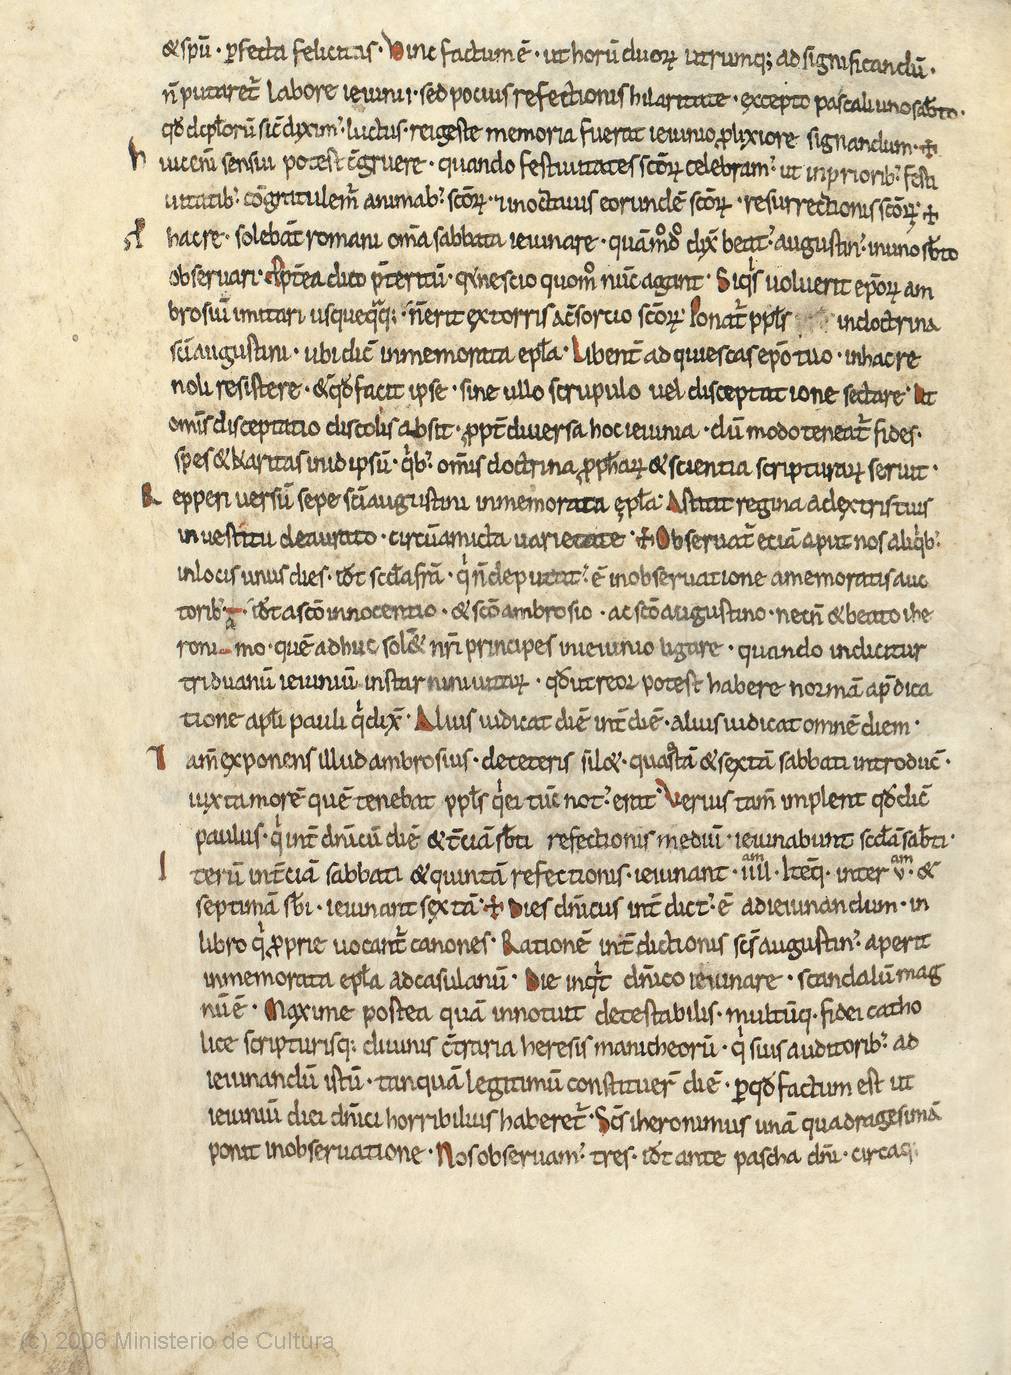 & spū · ꝑfecta felicitas · Hinc factum ē · ut horū duoꝝ utrumq; ad significandū ·
n̄ putaret̄ labore ieiunii · sed pocius refectionis hilaritate · excepto pascali uno sabƀto ·
qđ dc̄plōrū sic̄ diximꝰ luctus · rei geste memoria fuerat ieiunio ꝓlixiore signandum · ⁜
h uic enī sensui potest c̄gruere · quando festiuitates sc̄oꝝ celebramꝰ ut in priorib; festi
uitatib; cōgratulem̄ animab; sc̄oꝝ · in octauis eorundē sc̄oꝝ · resurrectionis sc̄oꝝ ⁜
hac re · solebāt romani om̄a sabbata ieiunare · quāmodo dix̄ beatꝰ augustinꝰ in uno sƀto
obseruari · Prēa dico p̄teritū · q nescio quom̊ nūc agant · Si qis uoluerit ep̄oꝝ am
brosiū imitari usquequaq; · n̄ erit extorris a c̄sortio sc̄oꝝ · Ponat̄ pp̄ls in doctrina
sc̄i augustini · ubi dic̄ in memorata epl̄a · Libent̄ adquiescas ep̄o tuo · in hac re
noli resistere · & qđ facit ipse · sine ullo scrupulo uel disceptatione sectare · Ut
omīs disceptatio discolis absit · ꝓpt̄ diuersa hoc ieiunia · dū modo teneat̄ fides ·
spes & karitas in id ipsū · qib; omīs doctrina ꝓphaꝝ & scientia scripturaꝝ seruit ·
R epperi uersū sepe sc̄i augustini in memorata epl̄a · Astitit regina a dextris tuis
in uestitu deaurato · circūamicta uarietate · ⁜ Obseruat̄ eciā aput nos aliqib;
in locis unus dies · iđt sc̄đa fr̄a · qi n̄ deputatꝰ ē in obseruatione a memoratis auc
torib; · iđt a sc̄o innocentio · & sc̄o ambrosio · ac sc̄o augustino · necn̄ & beato ihe
roni mo · quē adhuc solēt nr̄i principes in ieiunio ligare · quando indicitur
triduanū ieiuniū instar niniuitaꝝ · qđ ut reor potest habere normā ap̄dica
tione apl̄i pauli qi dix̄ · Alius iudicat diē int̄ diē · alius iudicat omnē diem ·
I am exponens illud ambrosius · de ceteris sil& · quartā & sextā sabbati introduc̄ ·
iuxta morē quē tenebat pp̄ls qi ei tūc notꝰ erat · Verius tam̄ implent qđ dic̄
paulus · qi int̄ dn̄icū diē & t̄ciā sƀti refectionis mediū · ieiunabunt sc̄đā saƀti ·
I terū int̄ t̄ciā sabbati & quintā refectionis · ieiunant · iiii am · Itēq; · inter v am · &
septimā sƀi · ieiunant sextā · ⁜ Dies dn̄icus int̄dictꝰ ē ad ieiunandum · in
libro qi ꝓprie uocant̄ canones · Rationē int̄dictionis sc̄s augustinꝰ aperit
in memorata epl̄a ad casulanū · Die inqt̄ dn̄ico ieiunare · scandalū mag
nū ē · Maxime postea quā innotuit detestabilis · multūq; · fidei catho
lice scripturisq; diuinis c̄traria heresis manicheorū · qi suis auditorib; ad
ieiunandū istū · tanquā legitimū constituer̄ diē · ꝑ qđ factum est ut
ieiuniū diei dn̄ici horribilius haberet̄ · Sc̄s iheronimus unā quadragesimā
ponit in obseruatione · Nos obseruamꝰ tres · iđt ante pascha dn̄i · circa q;
(c) 2006 Ministerio de Cultura